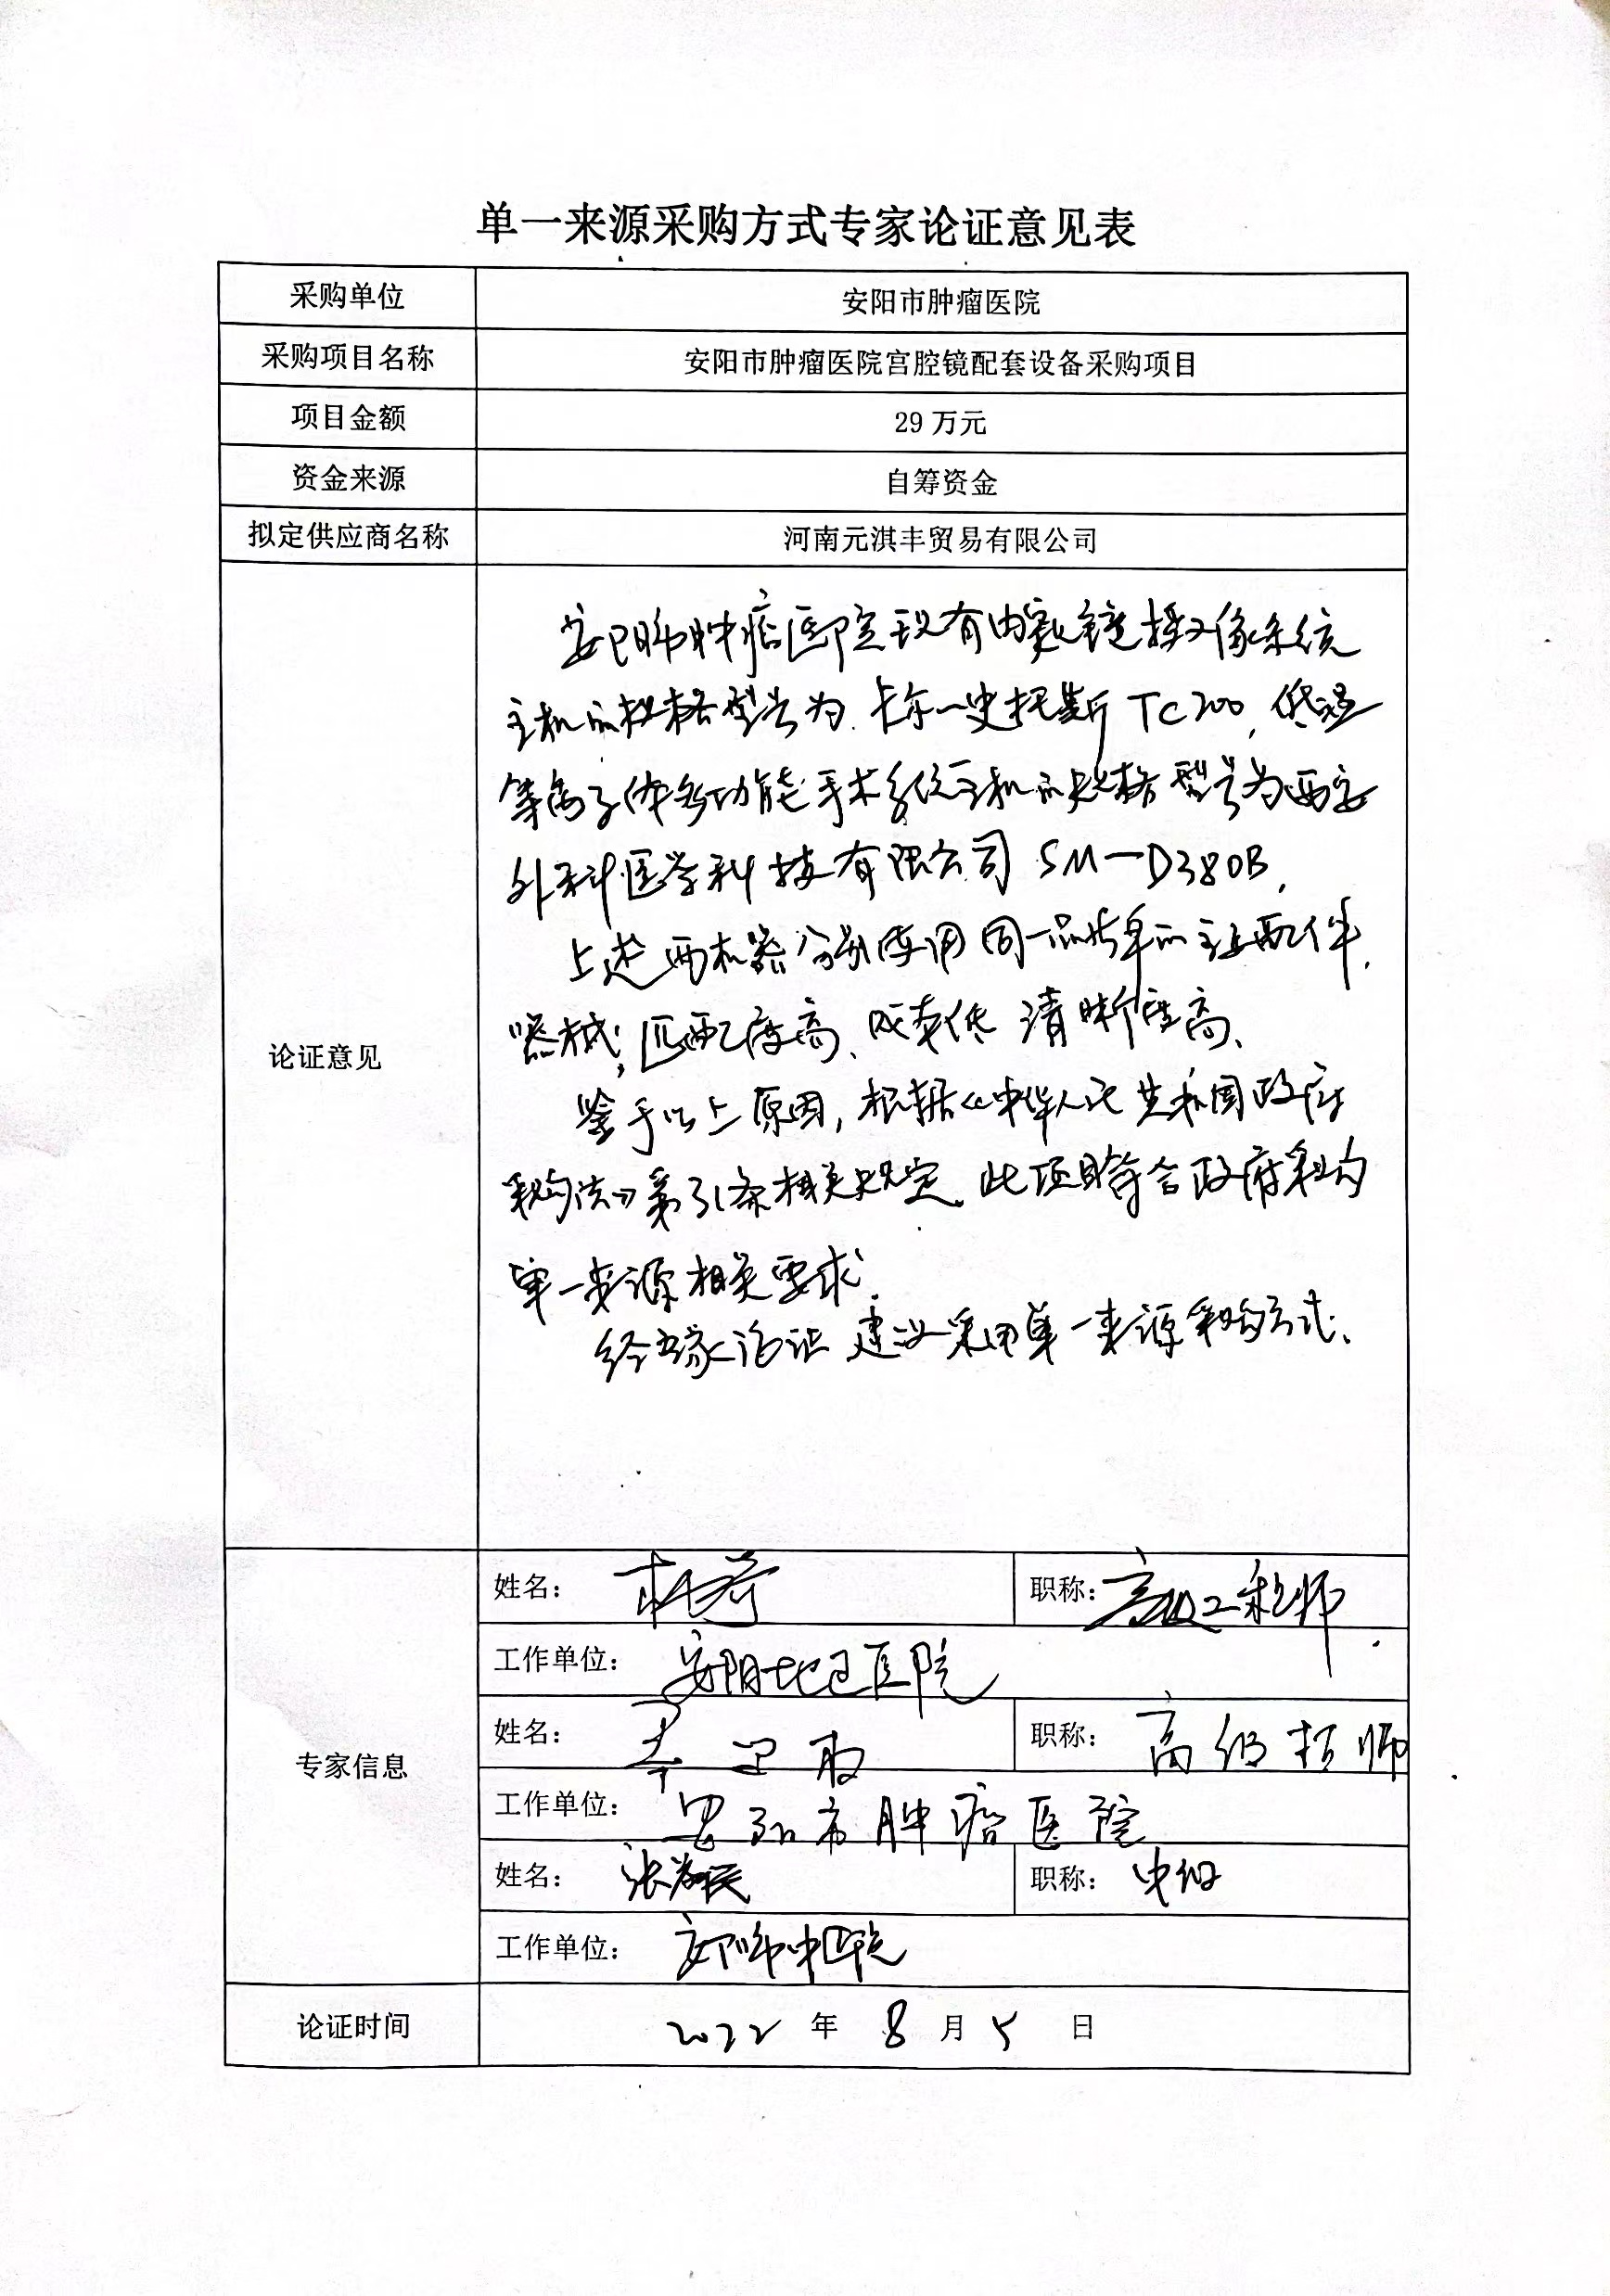 单一来源采购方式专家论证意见表
采购单位 安阳市肿瘤医院
采购项目名称 安阳市肿瘤医院宫腔镜配套设备采购项目
项目金额 29 万元
资金来源 自筹资金
拟定供应商名称 河南元淇丰贸易有限公司
论证意见
安阳市肿瘤医院现有内窥镜摄像系统
主机的规格型号为 卡尔一史托斯 TC200, 低温
等离子体多功能手术系统主机的规格型号为西安
外科医学科技有限公司 SM-D380B,
上述两机器分别使用同一品牌的主要配件,
器械, 匹配度高、成本低 清晰度高、
鉴于以上原因, 根据《中华人民共和国政府
采购法》第31条相关规定, 此项目符合政府采购
单一来源相关要求.
经专家论证 建议采用单一来源采购方式、
专家信息
姓名： 职称：高级工程师
工作单位： 安阳地区医院
姓名： 职称： 高级技师
工作单位： 安阳市肿瘤医院
姓名： 张 职称： 中级
工作单位： 安阳市中医院
论证时间 2022 年 8 月 5 日